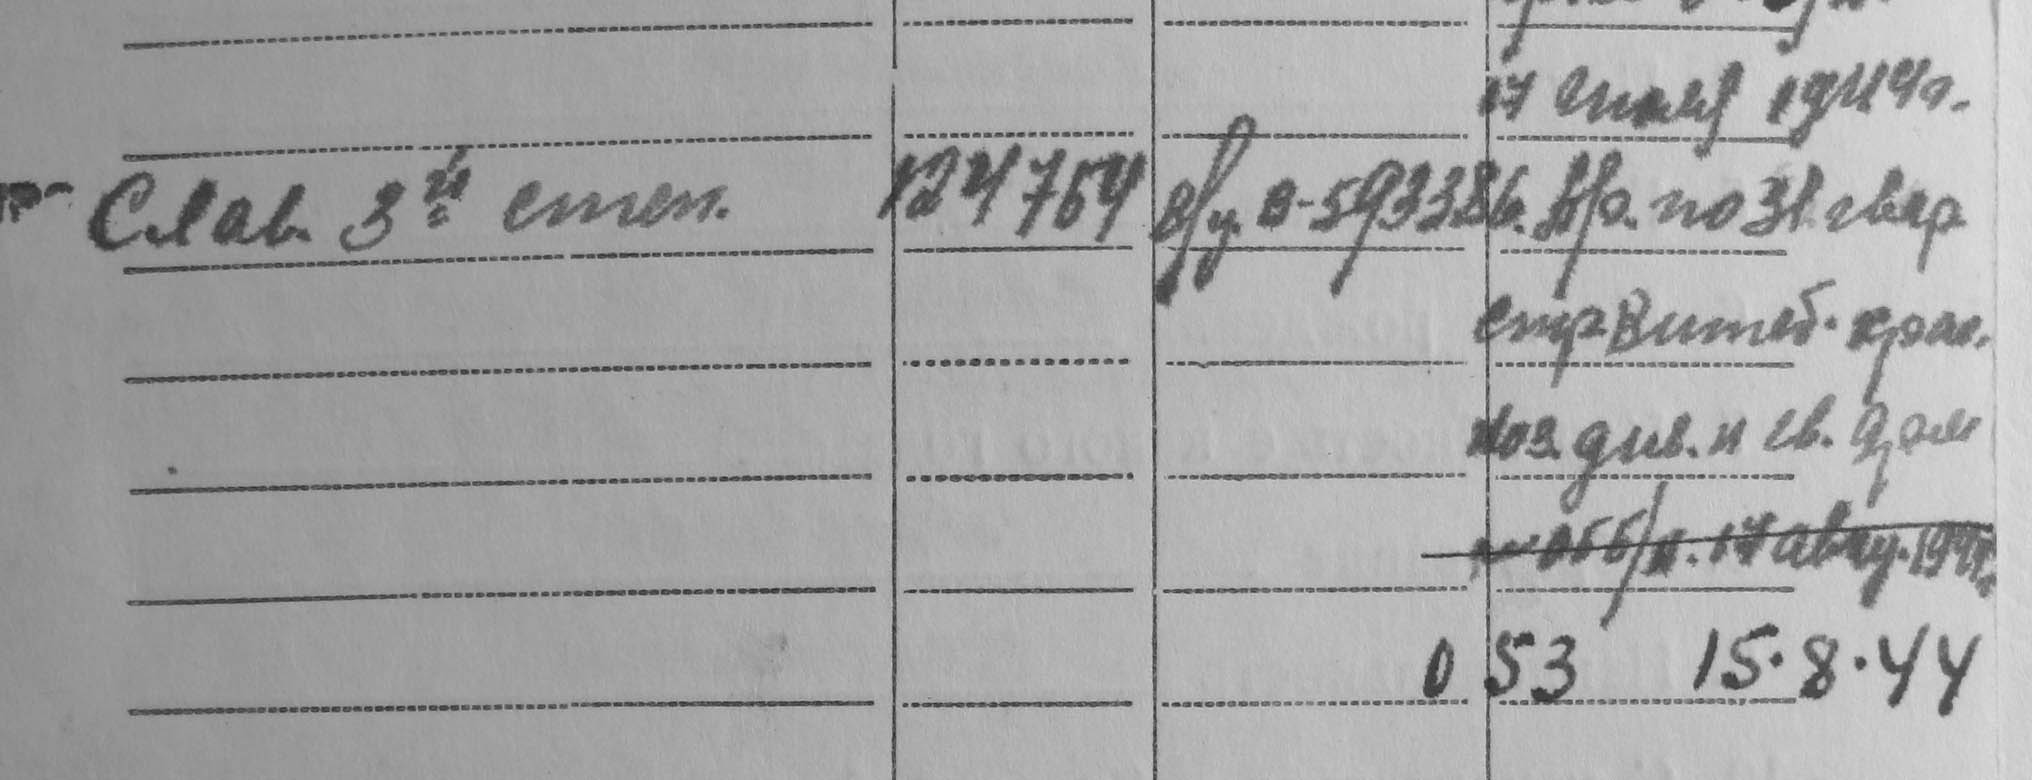 17 июля 1944г.
Слав. 3й степ. 124764 В/у. В-593386. Пр. по 31 гвар
стр Витеб. крас.
диз. див. и гв. дом
056/н. 17 авгу. 1944г.
053 15.8.44